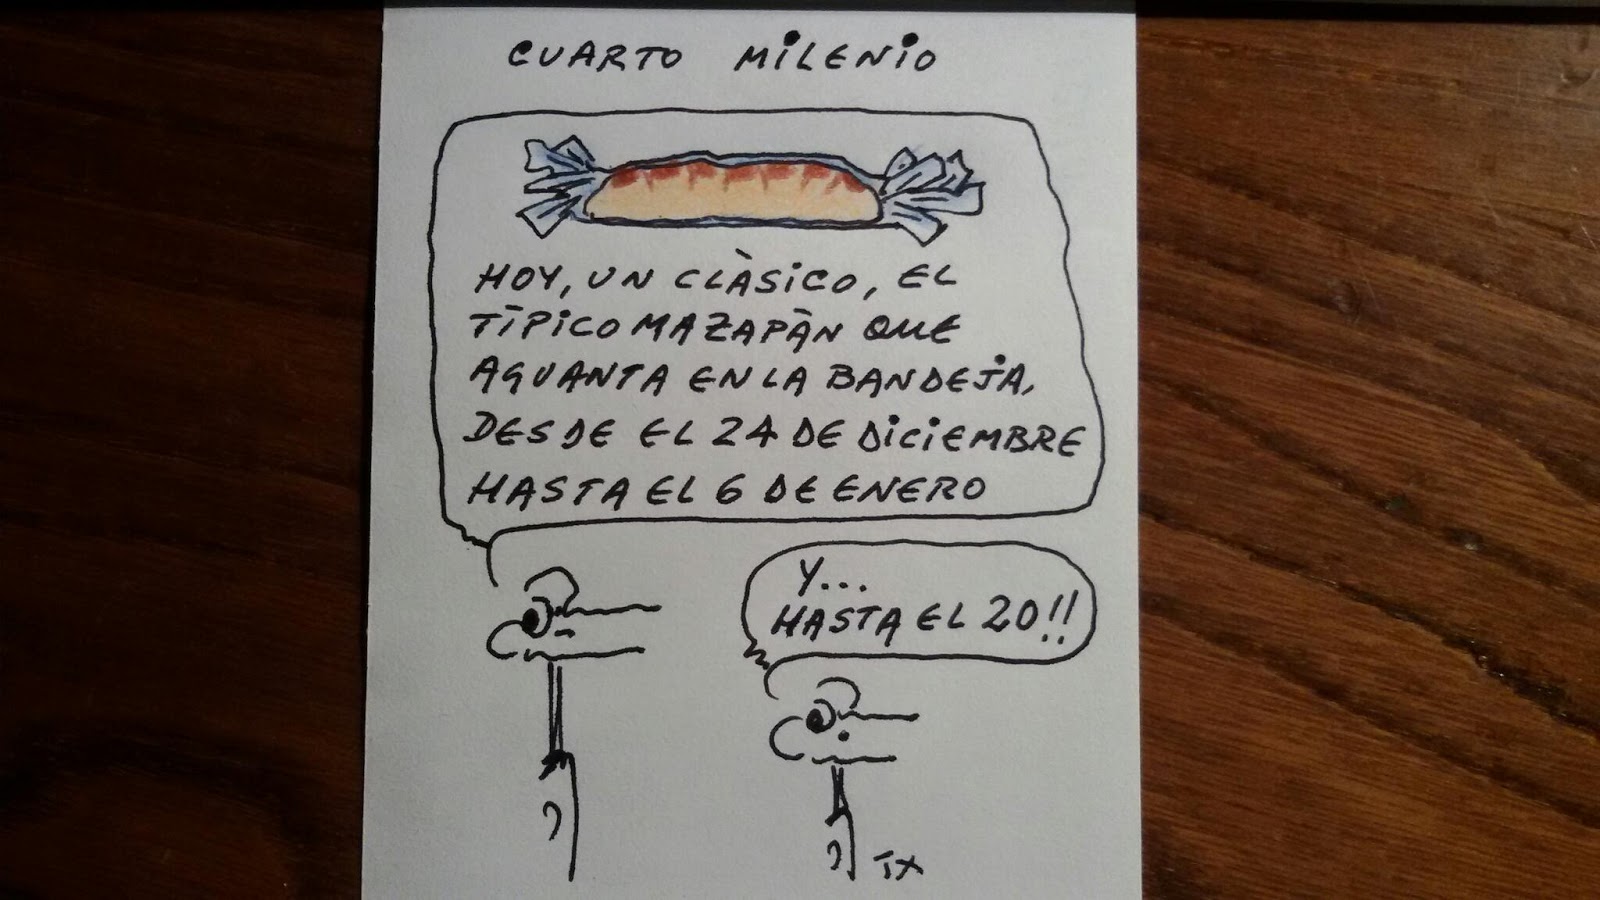 CUARTO MILENIO
HOY, UN CLÀSICO, EL
TÌPICO MAZAPÀN QUE
AGUANTA EN LA BANDEJA,
DESDE EL 24 DE DICIEMBRE
HASTA EL 6 DE ENERO
Y...
HASTA EL 20!!
TX